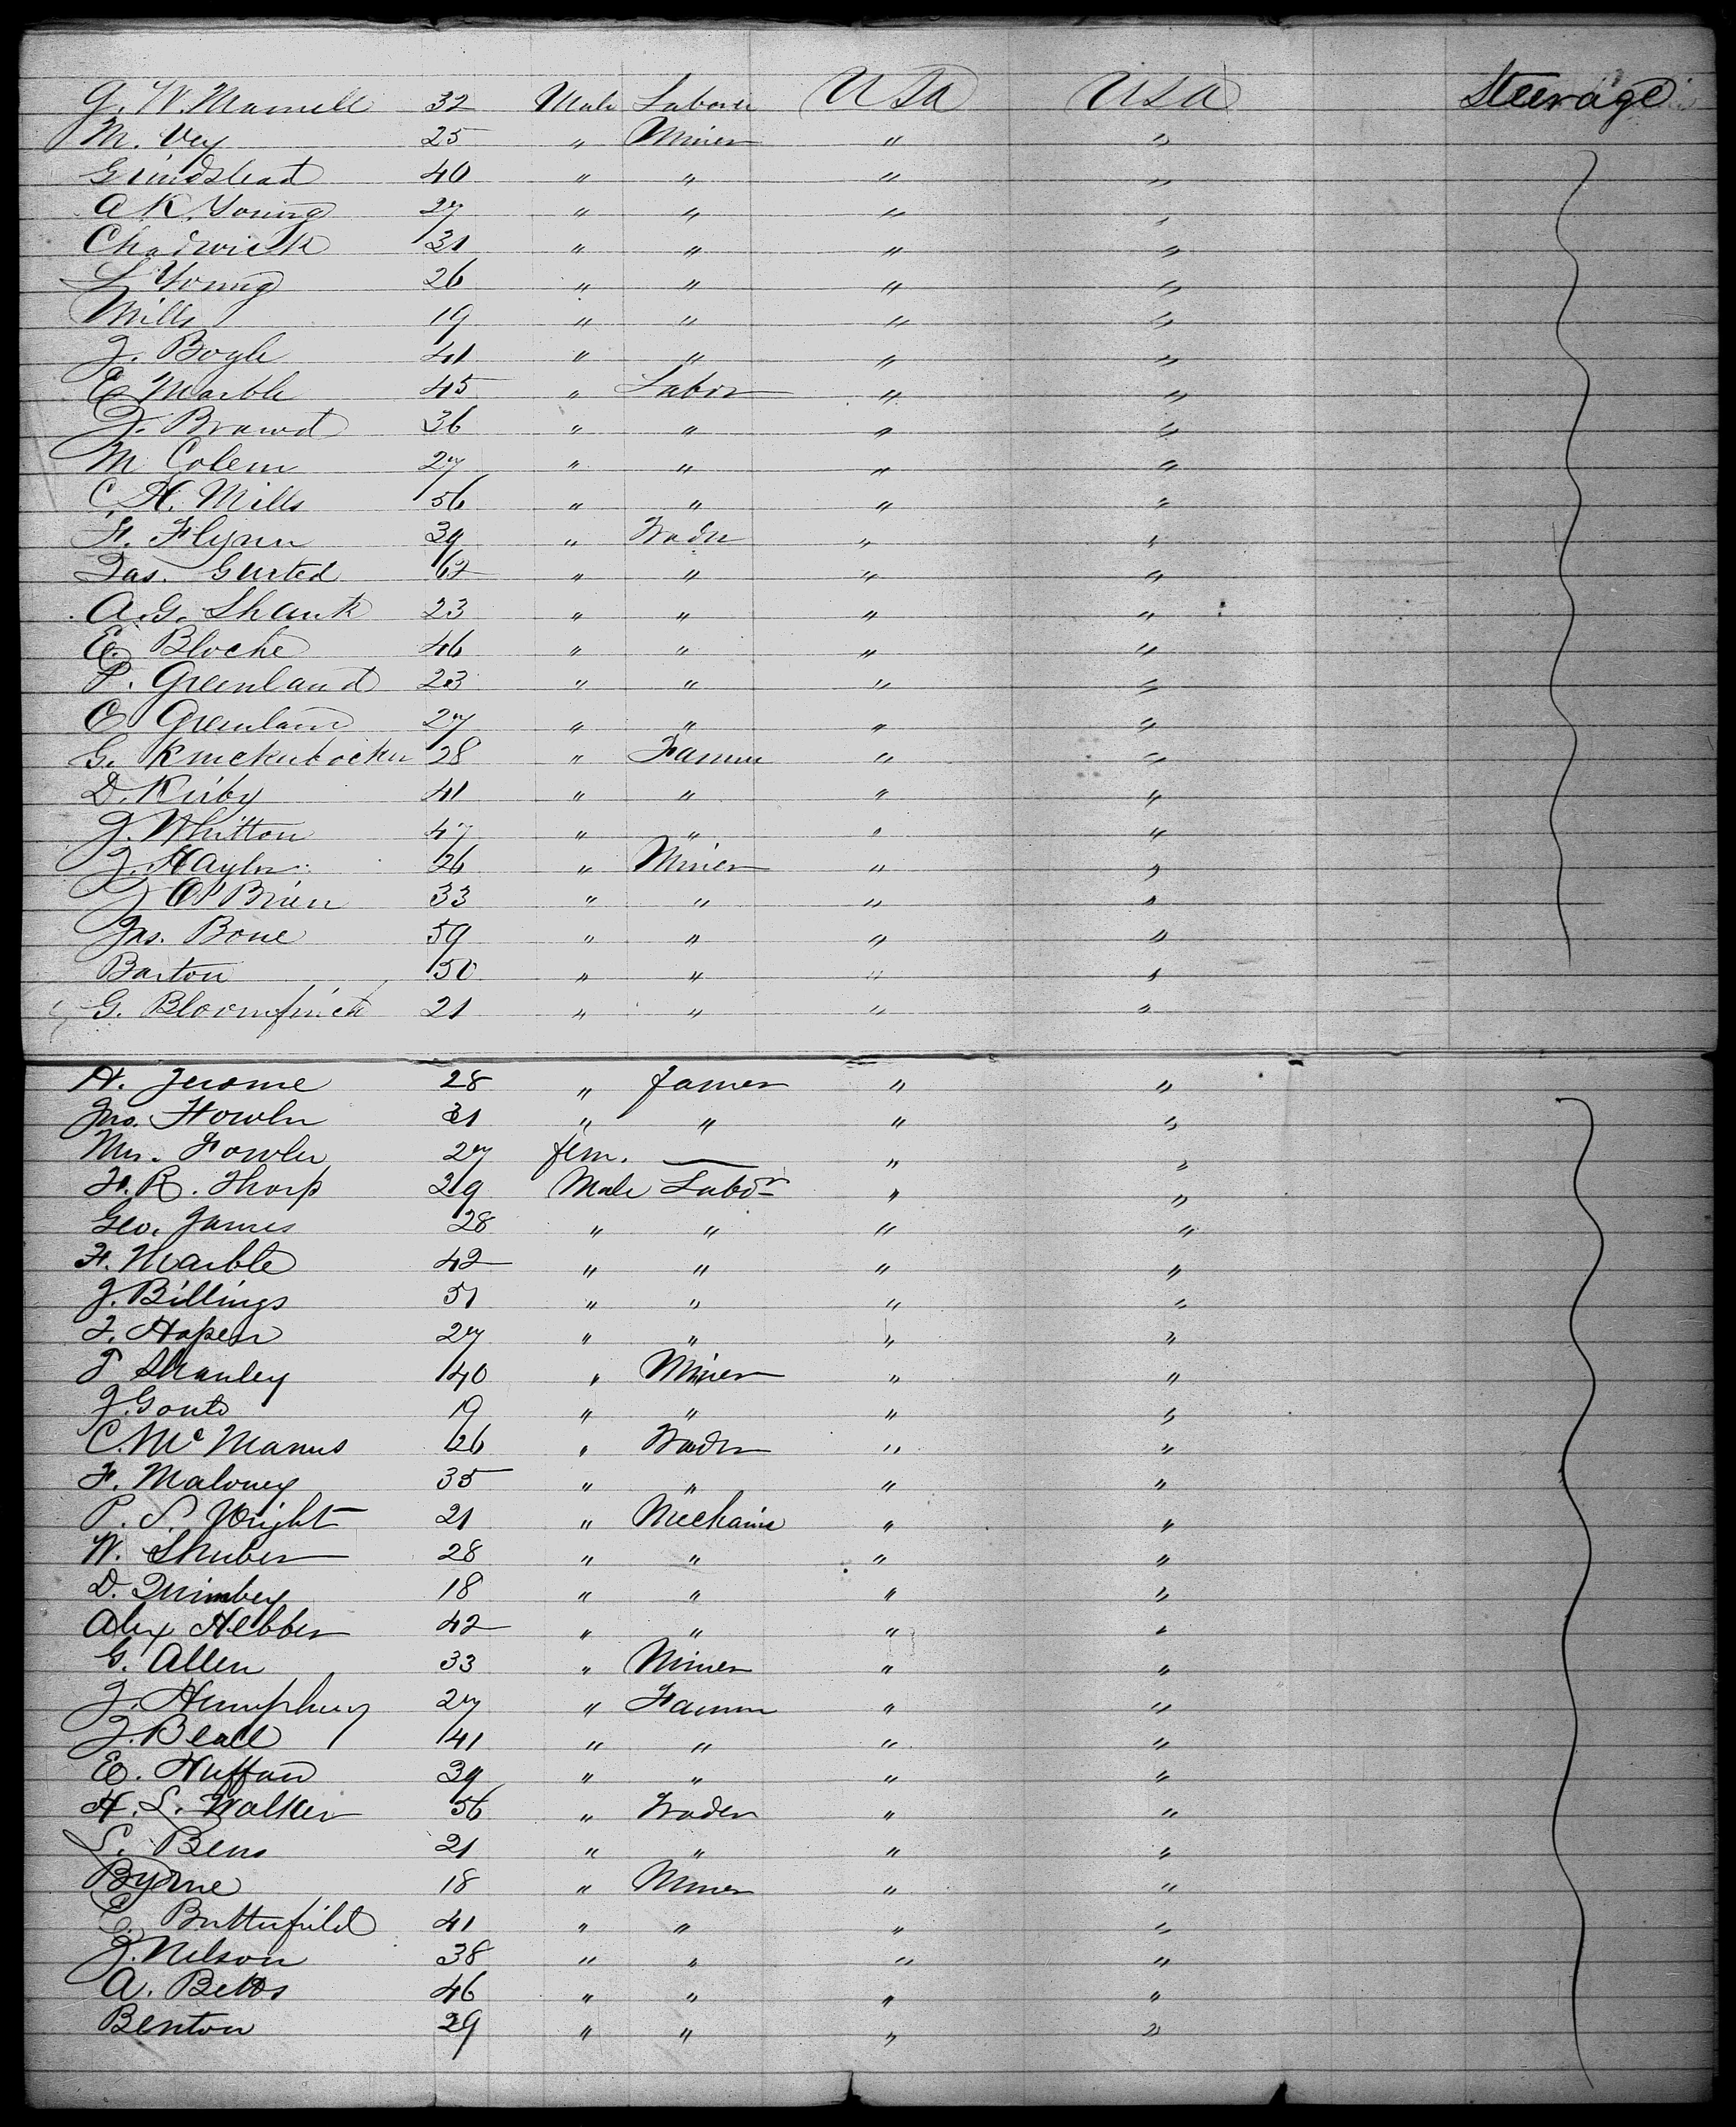 G. W. Mamell 32 Male Laborer USA USA Steerage
M. Vey 25 " Miner " "
Grindstead 40 " " " "
A K. Young 27 " " " "
Chadwick 31 " " " "
L Young 26 " " " "
Mills 19 " " " "
J. Boyle 41 " " " "
E Marble 45 " Labor " "
J. Brawd 36 " " " "
M Colem 27 " " " "
C. H. Mills 56 " " " "
F. Flynn 39 " Trader " "
Jas. Gurted 62 " " " "
A. G. Shank 23 " " " "
E. Bloche 46 " " " "
P. Greenland 23 " " " "
E Greenland 27 " " " "
G. Knickerbocker 28 " Farmer " "
D. Kirby 41 " " " "
J. Whitton 47 " " " "
J. Hayler 26 " Miner " "
J O'Brien 33 " " " "
Jas. Bone 59 " " " "
Barton 50 " " " "
G. Bloomfinch 21 " " " "
H. Jerome 28 " Famer " "
Jno. Fowler 31 " " " "
Mrs. Fowler 27 fem. — " "
F. R. Thorp 29 Male Labor " "
Geo. James 28 " " " "
F. Marble 42 " " " "
J. Billings 51 " " " "
J. Hapen 27 " " " "
P Shanley 40 " Miner " "
J. Gould 19 " " " "
C. Mc Manus 26 " Trader " "
F. Maloney 35 " " " "
P. S. Wright 21 " Mechanic " "
W. Shuber 28 " " " "
D. Quimbey 18 " " " "
Alex Hebber 42 " " " "
G. Allen 33 " Miner " "
J. Humphrey 27 " Farmer " "
J. Beall 41 " " " "
E. Huffan 39 " " " "
H. L. Walker 56 " Trader " "
L. Bens 21 " " " "
Byrne 18 " Miner " "
E. Butterfield 41 " " " "
J. Nelson 38 " " " "
A. Betts 46 " " " "
Benton 29 " " " "